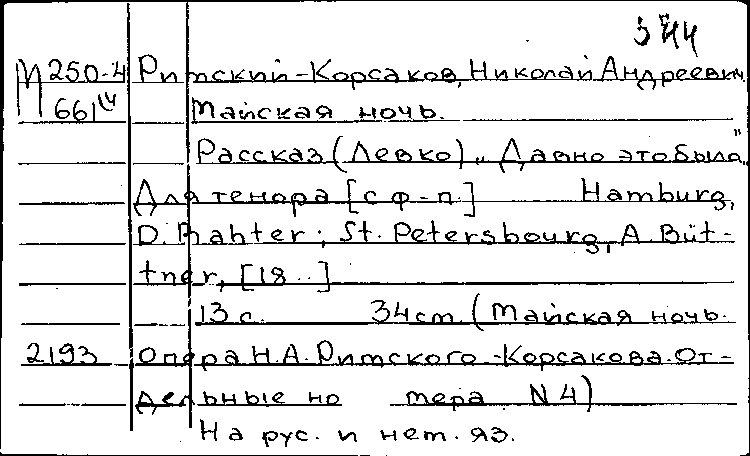 544
М 250-4 Римский-Корсаков, Николай Андреевич
661 Майская ночь.
Рассказ (Левко) „Давно это было"
Для тенора [с ф-п.] Hamburg,
D. Rahter; St. Petersbourg, A. Büt-
tner, [18..]
13 с. 34 cm (Майская ночь.
2193 Опера Н.А. Римского-Корсакова. От-
дельные но мера N 4)
На рус. и нем. яз.